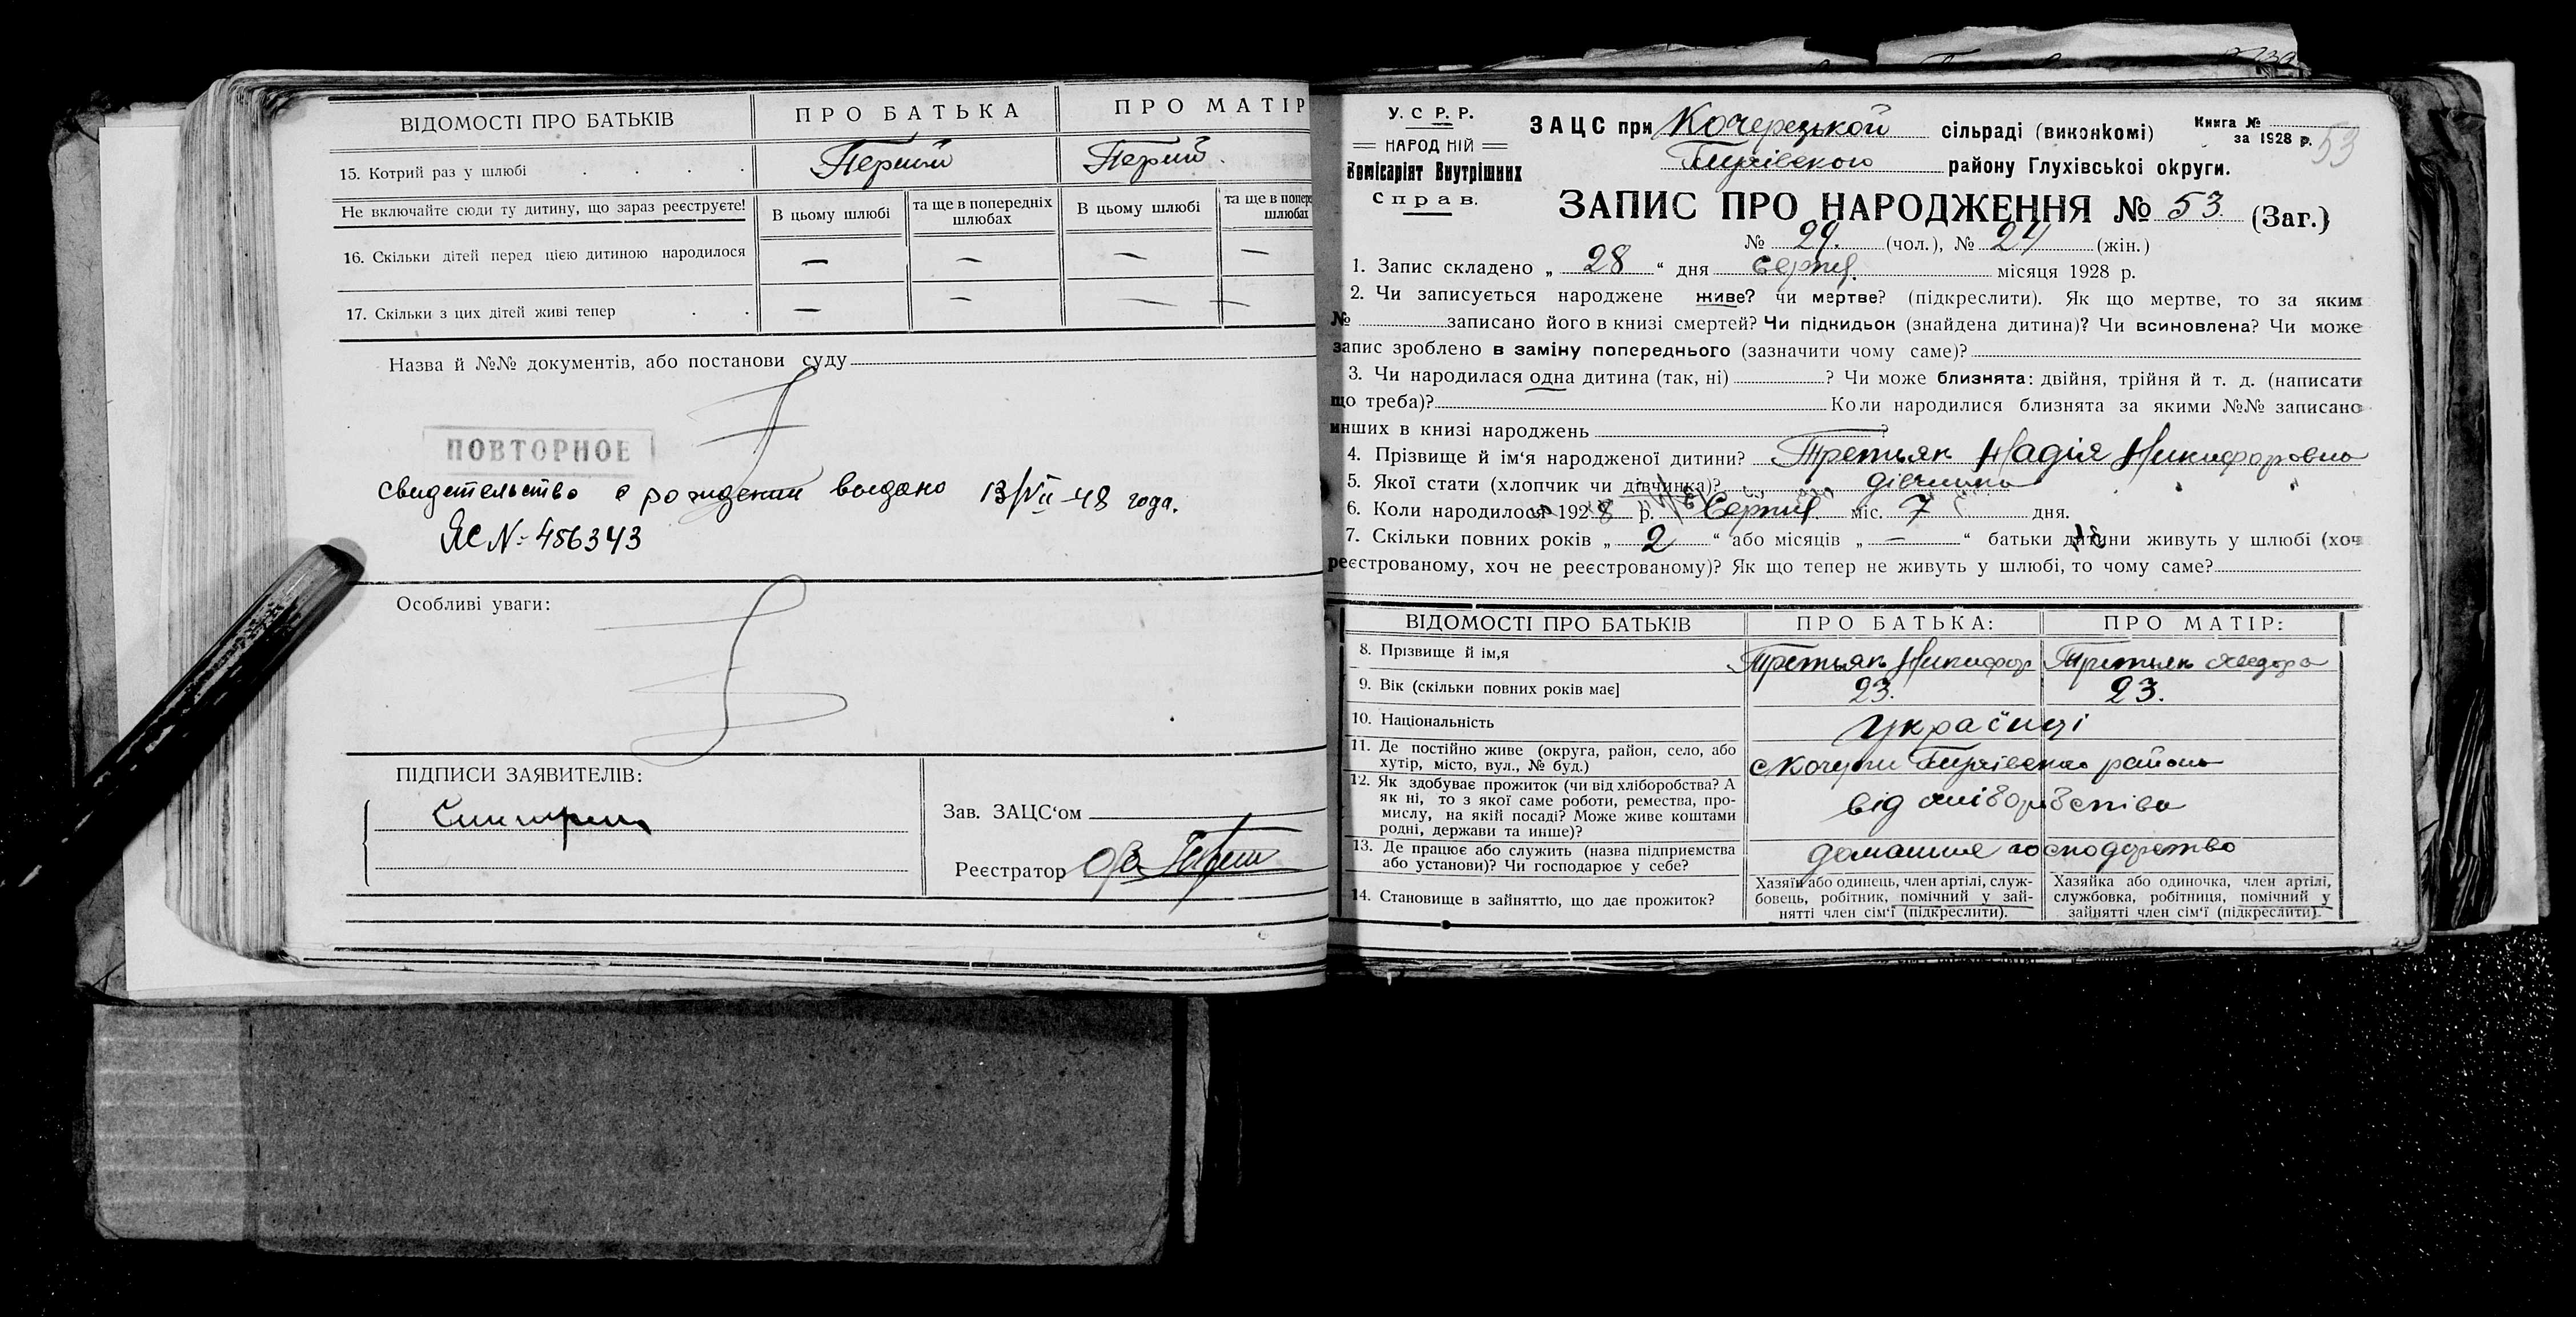 ВІДОМОСТІ ПРО БАТЬКІВ
ПРО БАТЬКА
ПРО МАТІР
15. Котрий раз у шлюбі
Перший
Перший
Не включайте сюди ту дитину, що зараз реєструєте!
В цьому шлюбі
та ще в попередніх шлюбах
В цьому шлюбі
та ще в попере
шлюбах
16. Скільки дітей перед цією дитиною народилося
— — — —
17. Скільки з цих дітей живі тепер
— — — —
Назва й №№ документів, або постанови суду
ПОВТОРНОЕ
свидетельство о рождении выдано 13/VII-48 года.
ЯС № 456343
Особливі уваги:
ПІДПИСИ ЗАЯВИТЕЛІВ:
Зав. ЗАЦС'ом
Реєстратор
У. С. Р. Р.
НАРОДНІЙ
Комісаріят Внутрішних
Справ.
ЗАЦС при Кочерецькой сільраді (виконкомі)
района Глухівської округи.
Книга №
за 1928 р.
53
ЗАПИС ПРО НАРОДЖЕННЯ № 53 (Заг.)
№ 29. (чол.), № 24 (жін.)
1. Запис складено „ 28 “ дня серпня місяця 1928 р.
2. Чи записується народжене живе? чи мертве? (підкреслити). Як що мертве, то за яким
№ записано його в книзі смертей? Чи підкидьок (знайдена дитина)? Чи всиновлена? Чи може
запис зроблено в заміну попереднього (зазначити чому саме)?
3. Чи народилася одна дитина (так, ні) ? Чи може близнята: двійня, трійня й т. д. (написати
що треба)? Коли народилися близнята за якими №№ записано
инших в книзі народжень ?
4. Прізвище й ім'я народженої дитини? Третьяк Надія Никифоровна
5. Якої стати (хлопчик чи дівчинка)? дівчинка
6. Коли народилося 1928 р. Серпня міс. 7 дня.
7. Скільки повних років „ 2 “ або місяців „ — “ батьки дитини живуть у шлюбі (хоч
реєстрованому, хоч не реєстрованому)? Як що тепер не живуть у шлюбі, то чому саме?
ВІДОМОСТІ ПРО БАТЬКІВ
ПРО БАТЬКА:
ПРО МАТІР:
8. Прізвище й ім,я
Третьяк Никифор
Третьяк
9. Вік (скільки повних років має]
23.
23.
10. Національність
українці
11. Де постійно живе (округа, район, село, або
хутір, місто, вул., № буд.)
района
12. Як здобуває прожиток (чи від хліборобства? А
як ні, то з якої саме роботи, ремества, про-
мислу, на якій посаді? Може живе коштами
родні, держави та инше)?
від хліборобства
13. Де працює або служить (назва підприємства
або установи)? Чи господарює у себе?
домашнє господарство
14. Становище в зайняттю, що дає прожиток?
Хазяїн або одинець, член артілі, служ-
бовець, робітник, помічний у зай-
нятті член сім'ї (підкреслити).
Хазяйка або одиночка, член артілі,
службовка, робітниця, помічний у
зайнятті член сім'ї (підкреслити).